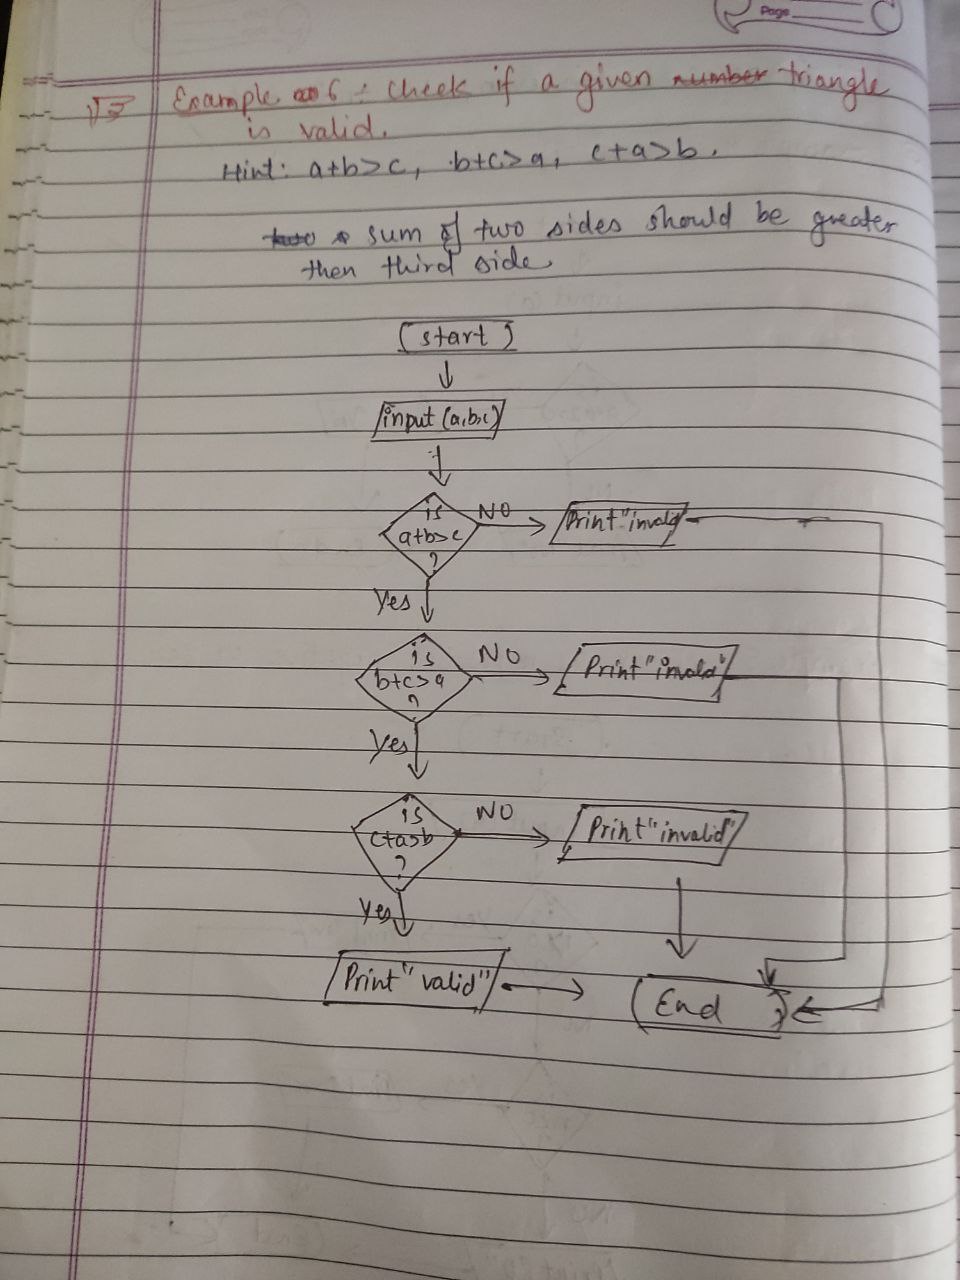 Page
Example no 6 : Check if a given number triangle
is valid.
Hint: a+b>c, b+c>a, c+a>b.
sum of two sides should be greater
then third side
start
input (a,b,c)
is
a+b>c
?
NO
Print "invald
Yes
is
b+c>a
?
NO
Print "invald"
Yes
is
c+a>b
?
NO
Print "invalid"
Yes
Print "valid"
End